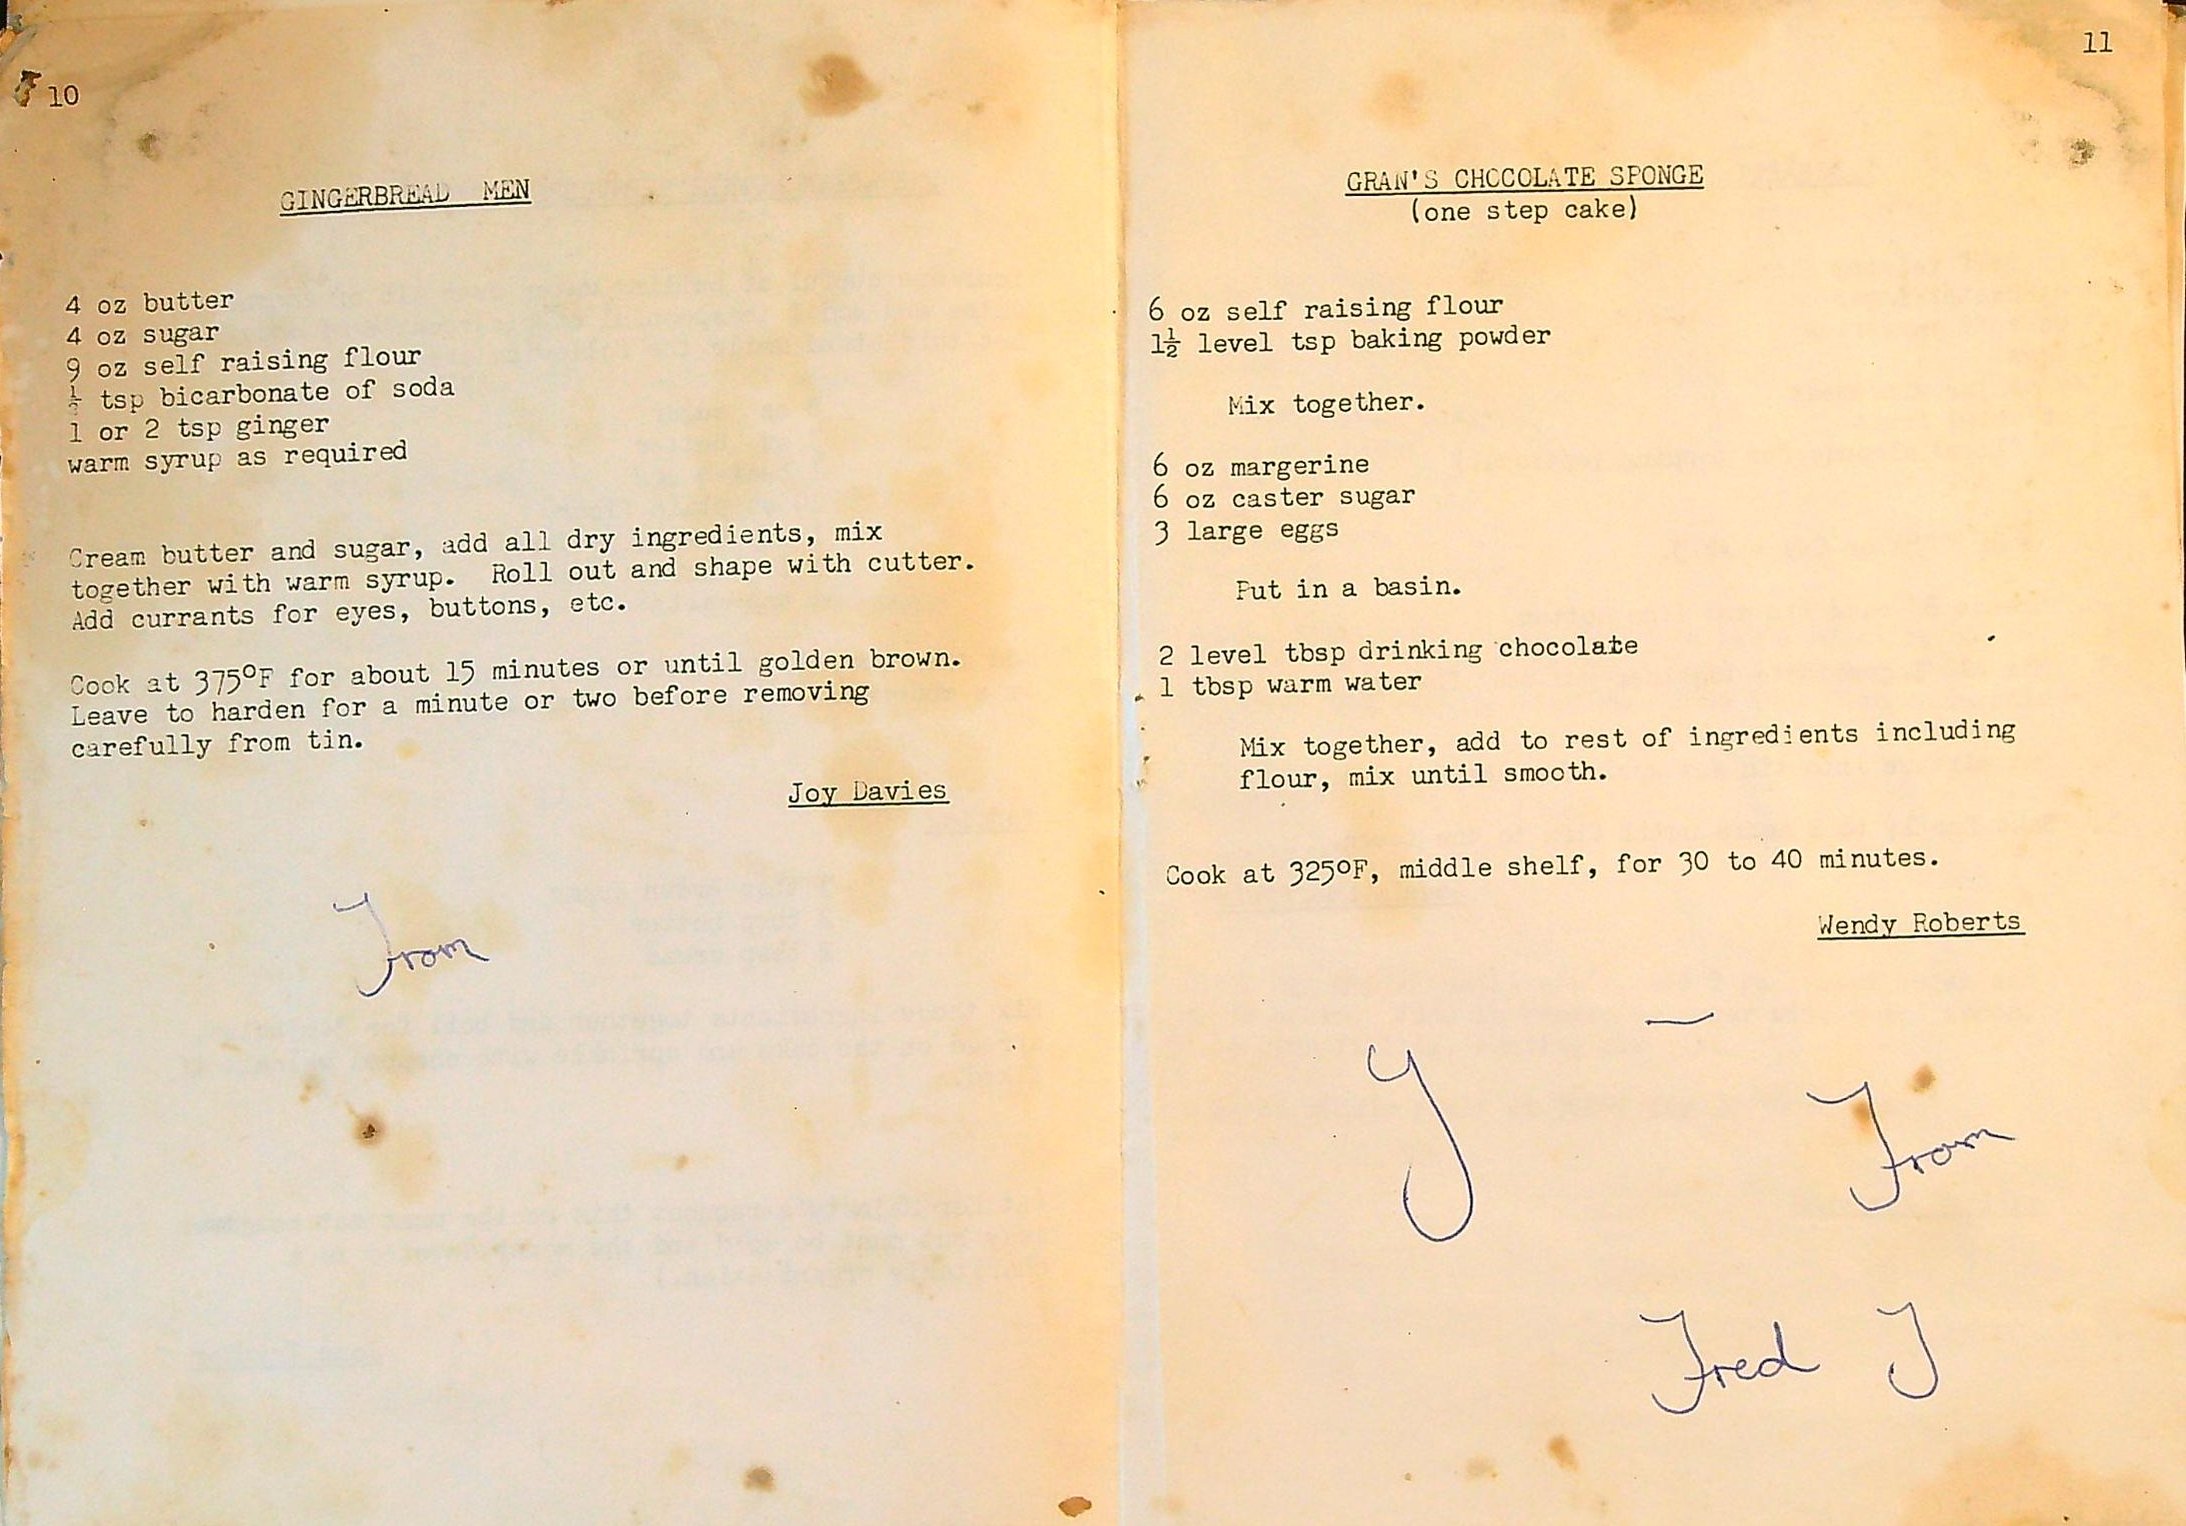 10
GINGERBREAD MEN
4 oz butter
4 oz sugar
9 oz self raising flour
½ tsp bicarbonate of soda
1 or 2 tsp ginger
warm syrup as required
Cream butter and sugar, add all dry ingredients, mix
together with warm syrup. Roll out and shape with cutter.
Add currants for eyes, buttons, etc.
Cook at 375°F for about 15 minutes or until golden brown.
Leave to harden for a minute or two before removing
carefully from tin.
Joy Davies
From
11
GRAN'S CHOCOLATE SPONGE
(one step cake)
6 oz self raising flour
1½ level tsp baking powder
Mix together.
6 oz margerine
6 oz caster sugar
3 large eggs
Put in a basin.
2 level tbsp drinking chocolate
1 tbsp warm water
Mix together, add to rest of ingredients including
flour, mix until smooth.
Cook at 325°F, middle shelf, for 30 to 40 minutes.
Wendy Roberts
From
Fred J